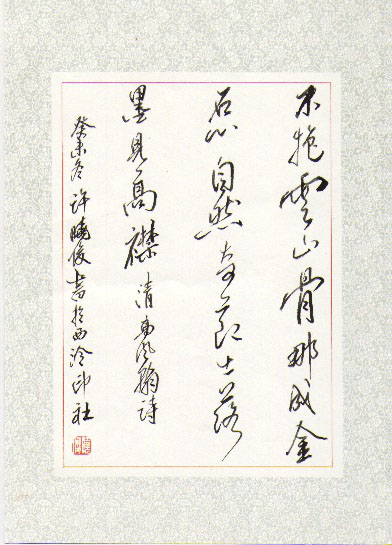 不抱雲山骨那成金
石心自然奇節士落
墨見高襟 清高鳳翰詩
癸未冬許曉俊書於西泠印社